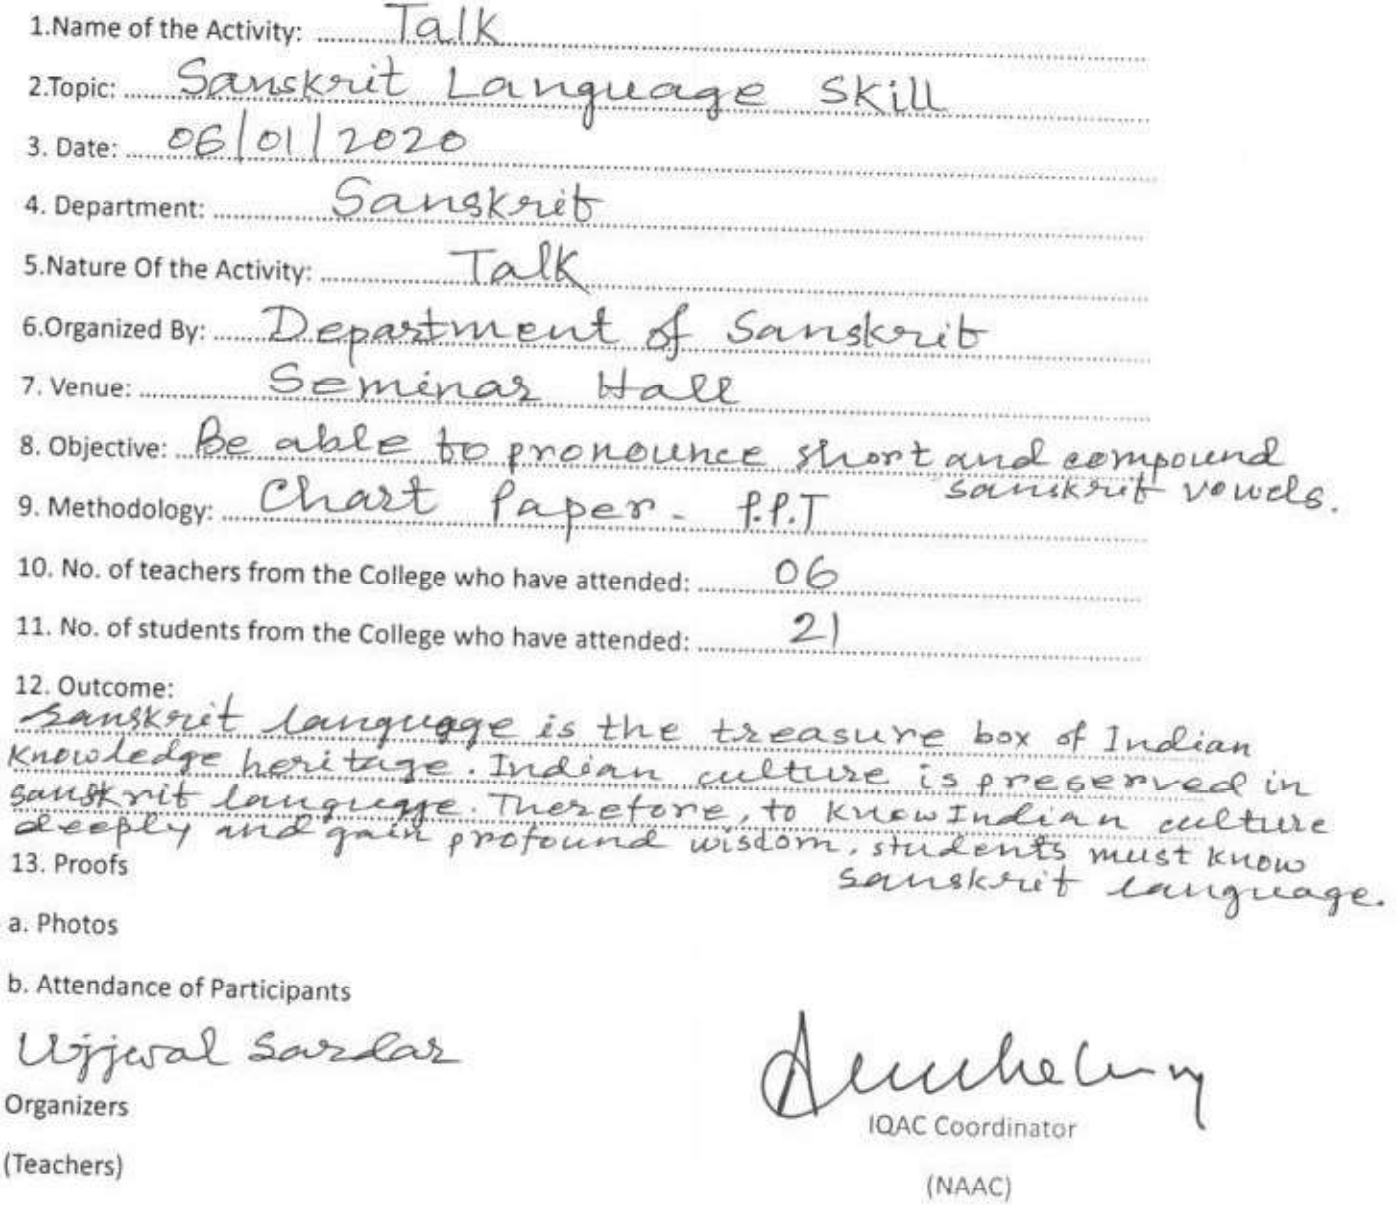 1.Name of the Activity: Talk
2.Topic: Sanskrit Language Skill
3. Date: 06/01/2020
4. Department: Sanskrit
5.Nature Of the Activity: Talk
6.Organized By: Department of Sanskrit
7. Venue: Seminar Hall
8. Objective: Be able to pronounce short and compound
sanskrit vowels.
9. Methodology: Chart Paper - P.P.T
10. No. of teachers from the College who have attended: 06
11. No. of students from the College who have attended: 21
12. Outcome:
Sanskrit language is the treasure box of Indian
Knowledge heritage. Indian culture is preserved in
sanskrit language. Therefore, to know Indian culture
deeply and gain profound wisdom, students must know
sanskrit language.
13. Proofs
a. Photos
b. Attendance of Participants
Ujjwal Sardar
Organizers
IQAC Coordinator
(Teachers)
(NAAC)